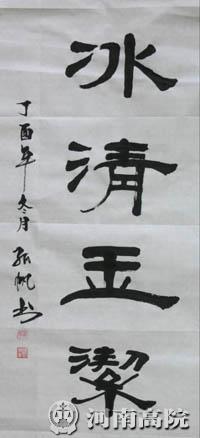 冰清玉潔
丁酉年冬月 張帆书
河南高院